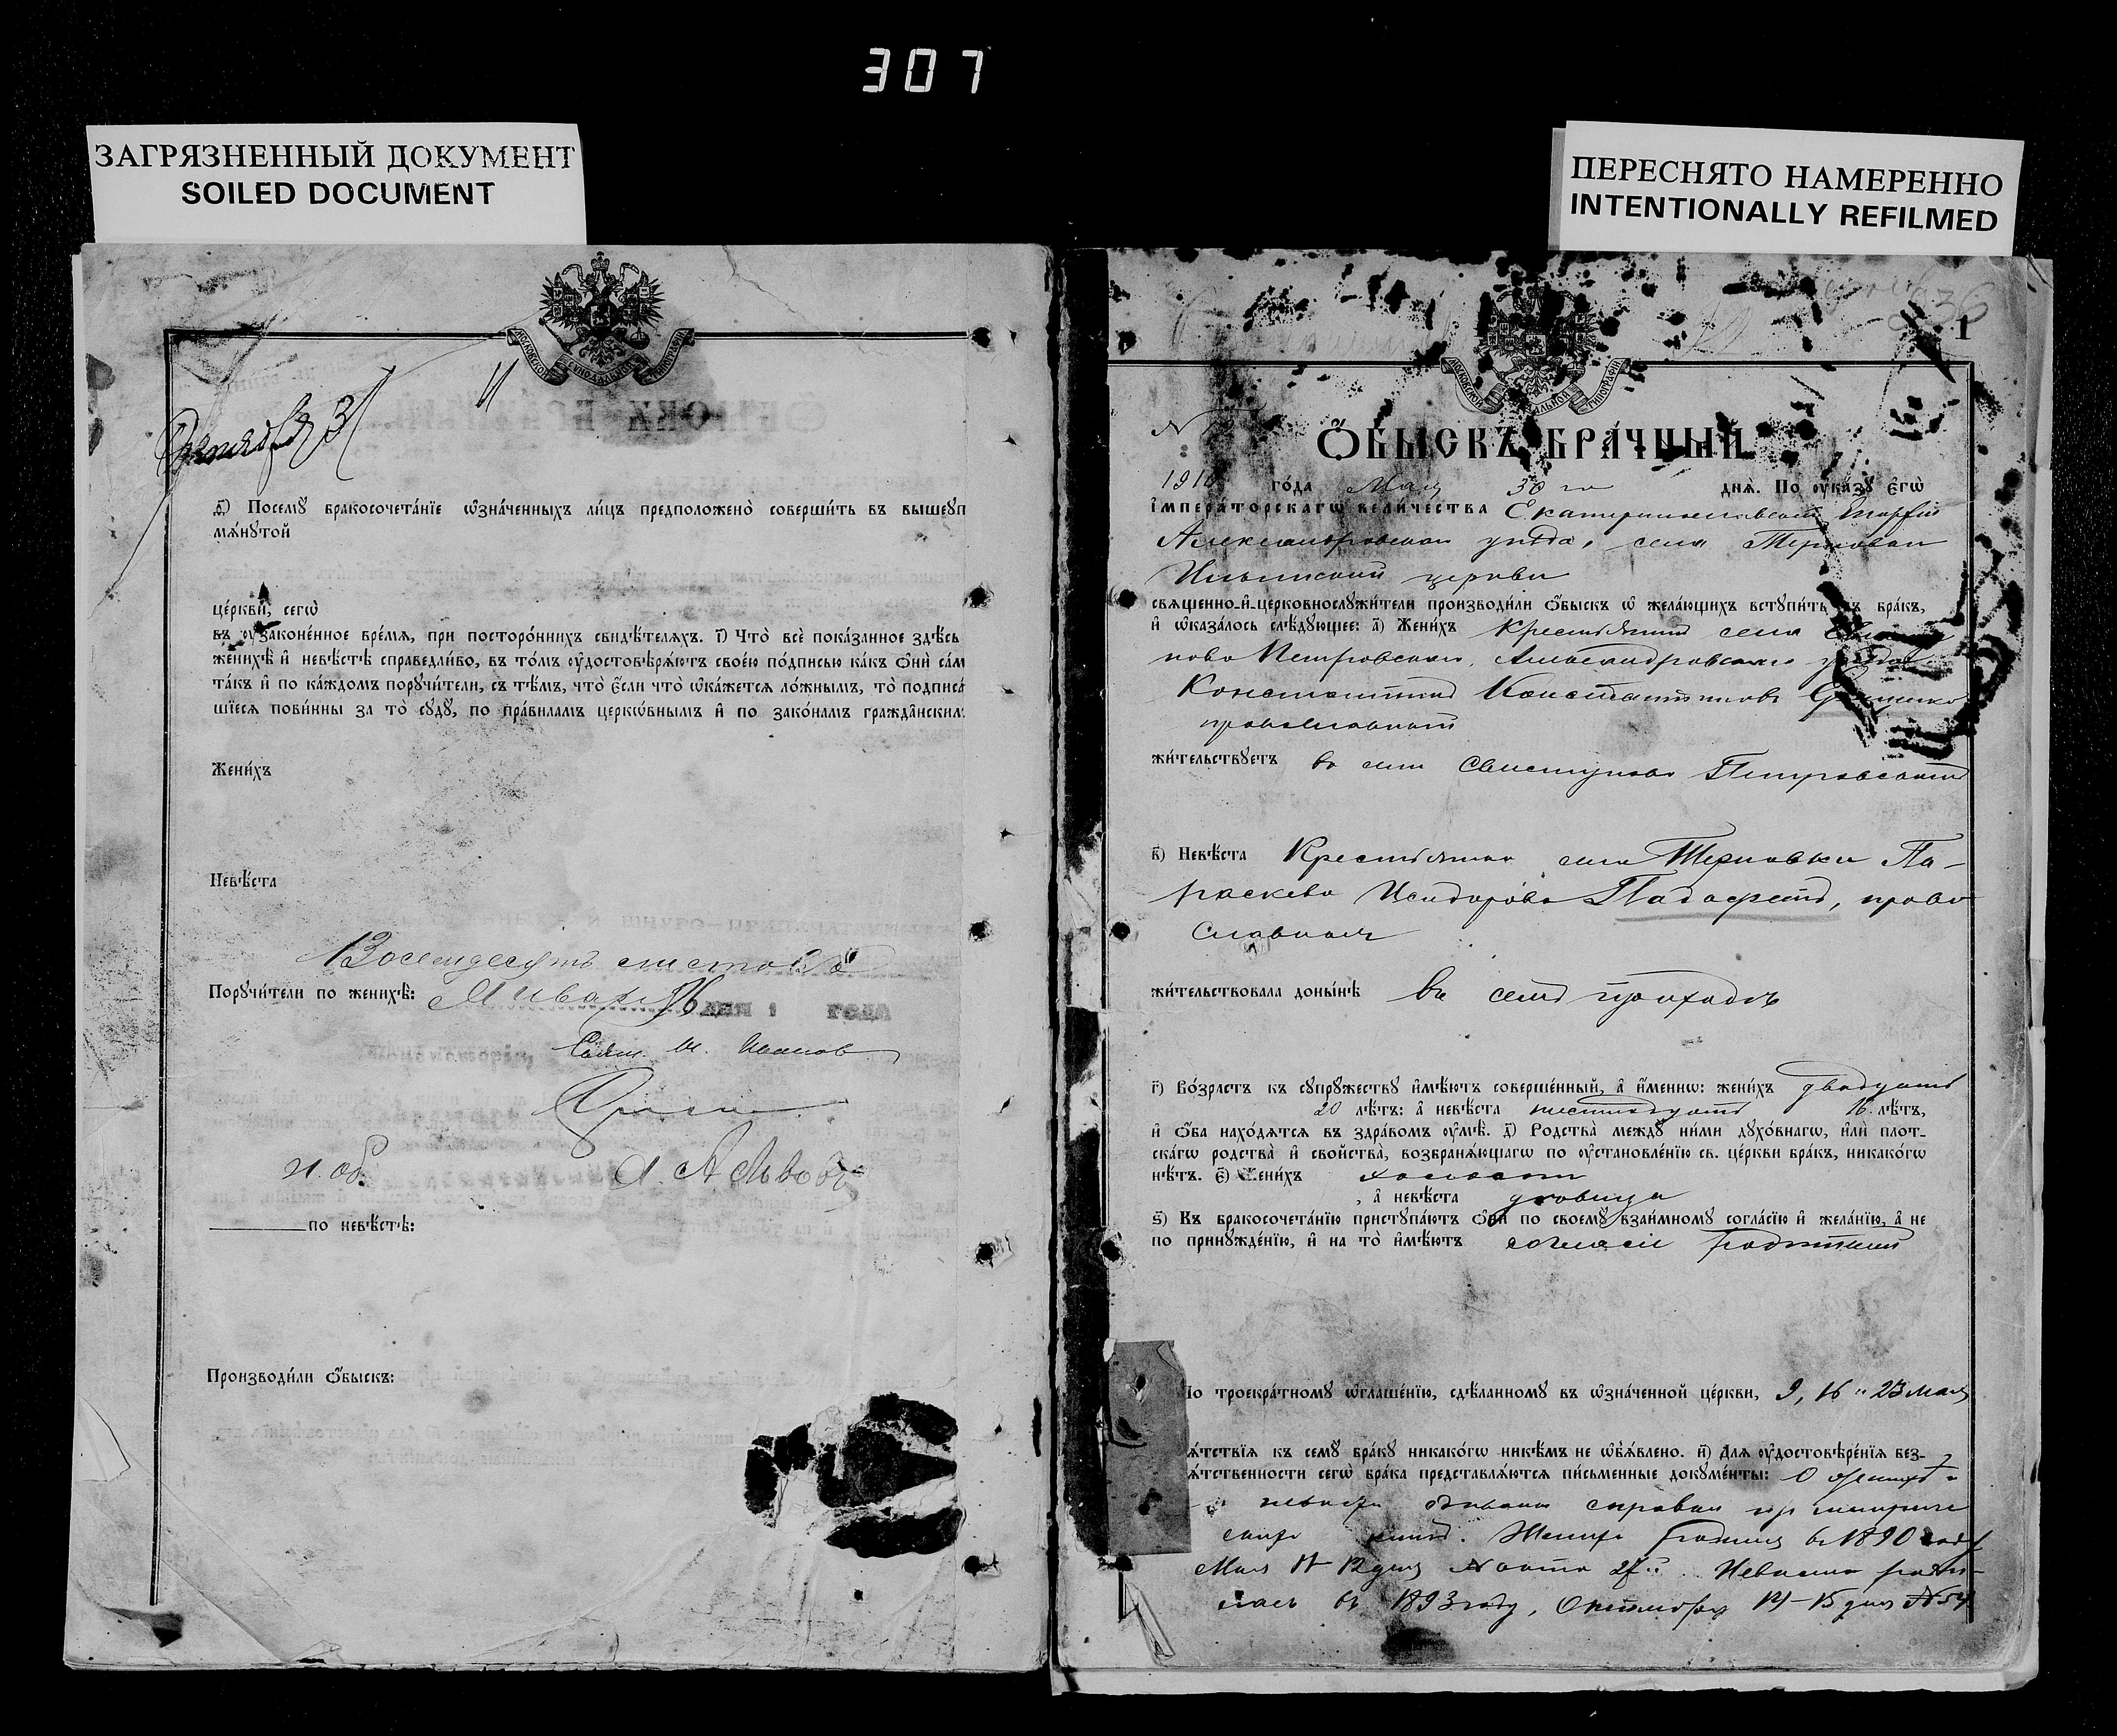 307
ЗАГРЯЗНЕННЫЙ ДОКУМЕНТ
SOILED DOCUMENT
ПЕРЕСНЯТО НАМЕРЕННО
INTENTIONALLY REFILMED
МОСКОВСКОЙ СѴНОДАЛЬНОЙ ТИПОГРАФІИ
з҃) Посемꙋ̀ бракосочета́нїе ѡ҆зна́ченныхъ ли́цъ предположено̀ соверши́ть въ вышеꙋп
мѧ́нꙋтой
це́ркви, сегѡ̀
въ ᲂу҆зако́не́нное вре́мѧ, при посторо́ннихъ свидѣ́телѧхъ. і҃) Что̀ всѐ пока́занное здѣ́сь
женихѣ̀ и҆ невѣ́стѣ справедли́во, въ то́мъ ᲂу҆достовѣрѧ́ютъ свое́ю по́дписью ка́къ ѻ҆нѝ са́м
та́къ и҆ по ка́ждомъ порꙋчи́тели, съ тѣ́мъ, что̀ є҆́сли что̀ ѡ҆ка́жетсѧ ло́жнымъ, то̀ подписа́
шїесѧ пови́нны за то̀ сꙋдꙋ̀, по пра́виламъ церко́внымъ и҆ по зако́намъ гражда́нским
Жени́хъ
Невѣ́ста
Восемдесятъ листовъ
Порꙋчи́тели по женихѣ̀:
М Иванов
ГОДА
Свящ. М. Иванов
А Львов
по невѣ́стѣ:
Производи́ли ѻ҆́быскъ:
1
МОСКОВСКОЙ СѴНОДАЛЬНОЙ ТИПОГРАФІИ
N
Ѻ҆́БЫСКЪ БРА́ЧНЫЙ.
1910 го́да Мая 30 го днѧ̀. По ᲂу҆ка́зꙋ є҆гѡ̀
і҆мпера́торскагѡ вели́чества Екатеринославской Епархіи
Александровскаго уѣзда, села Терновки
Ильинской церкви
свѧще́нно-и҆-церковнослꙋжи́тели производи́ли ѻ҆́быскъ ѡ҆ жела́ющихъ встꙋпи́ть въ бра́къ,
и҆ ѡ҆каза́лось слѣ́дꙋющее: а҃) Жени́хъ крестьянинъ села Свисту
ново Петровскаго, Александровскаго уѣзда
Константинъ Константиновъ
православный
жи́тельствꙋетъ въ селѣ Свистуново Петровскомъ
в҃) Невѣ́ста Крестьянка села Терновки Па-
раскева Исидорова, право
славная
жи́тельствовала доны́нѣ въ семъ приходѣ
г҃) Во́зрастъ къ сꙋпрꙋ́жествꙋ и҆мѣ́ютъ соверше́нный, а҆ и҆́менно: жени́хъ двадцать
20 лѣ́тъ: а҆ невѣ́ста шестнадцать 16 лѣ́тъ,
и҆ ѻ҆́ба нахо́дѧтсѧ въ здра́вомъ ᲂу҆мѣ̀. д҃) Родства̀ междꙋ̀ ни́ми дꙋхо́внагѡ, и҆лѝ плот-
ска́гѡ родства̀ и҆ сво́йства, возбранѧ́ющагѡ по ᲂу҆становле́нїю св. це́ркви бра́къ, никако́гѡ
нѣ́тъ. є҃) Жени́хъ холостъ
, а҆ невѣ́ста дѣвица
ѕ҃) Къ бракосочета́нїю пристꙋпа́ютъ ѻ҆нѝ по своемꙋ̀ взаи́мномꙋ согла́сїю и҆ жела́нїю, а҆ не
по принꙋжде́нїю, и҆ на то̀ и҆мѣ́ютъ согласіе родителей
по троекра́тномꙋ ѡ҆глаше́нїю, сдѣ́ланномꙋ въ ѡ҆зна́ченной це́ркви, 9, 16 и 23 мая
ѧ́тствїѧ къ семꙋ̀ бра́кꙋ никако́гѡ никѣ́мъ не ѡ҆б̾ѧ́влено. и҃) Для ᲂу҆достовѣре́нїѧ без-
ѧ́тственности сегѡ̀ бра́ка представлѧ́ютсѧ пи́сьменные докꙋме́нты: О женихѣ и
невѣстѣ справки
книгъ. Женихъ родился въ 1890 году
Мая 11-12 дня N 27. Невѣста роди-
лась въ 1893 году, Октября 14-15 дня N 54